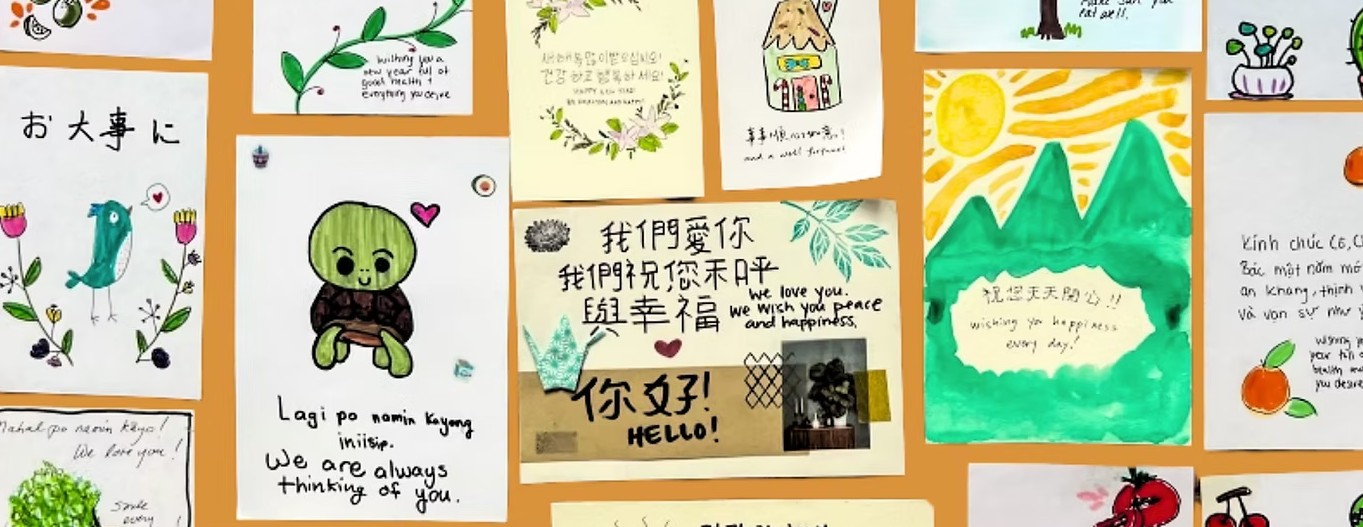 eat well.
wishing you a
new year full of
good health +
everything you desire
새해 복 많이 받으십시요!
건강하고 행복하세요!
事事順心如意!
and a well fortune!
お大事に
Lagi po namin kayong
iniisip.
We are always
thinking of you.
我們愛你
我們祝您禾呯
與幸福
we love you.
we wish you peace
and happiness.
你好!
HELLO!
祝您天天開心!!
wishing you happiness
every day!
Kính chúc
Bác một năm mới
an khang, thịnh
và vạn sự như
wishing
year full
health
you desire
Mahal po namin kayo!
We love you!
smile
every